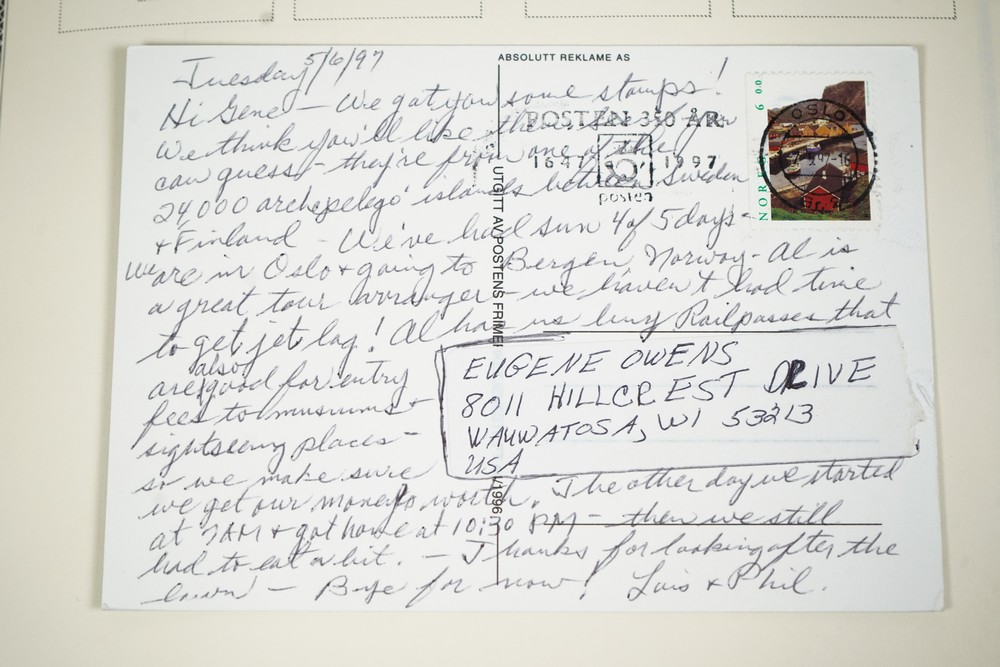 ABSOLUTT REKLAME AS
Tuesday 5/6/97
Hi Gene - We got you some stamps!
We think you'll like them, if you
can guess - they're from one of the
24,000 archepelego islands between Sweden
& Finland - We've had sun 4 of 5 days -
We are in Oslo & going to Bergen, Norway - Al is
a great tour arranger - we haven't had time
to get jet lag! Al has us buy Railpasses that
are also good for entry
fees to museums &
sightseeing places -
so we make sure
we get our money's worth. The other day we started
at 7AM & got home at 10:30 PM - then we still
had to eat a bit. - Thanks for looking after the
lawn - Bye for now! Lois & Phil.
EUGENE OWENS
8011 HILLCREST DRIVE
WAUWATOSA, WI 53213
USA
POSTEN 350 ÅR
1647 1997
posten
NOREG 6 00
OSLO
UTGITT AV POSTENS FRIMER
1/1996